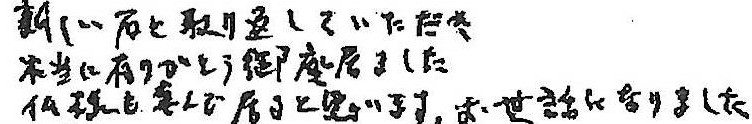 新しい石と取り返していただき
本当に有りがとう御座居ました
仏様も喜んで居ると思います。お世話になりました